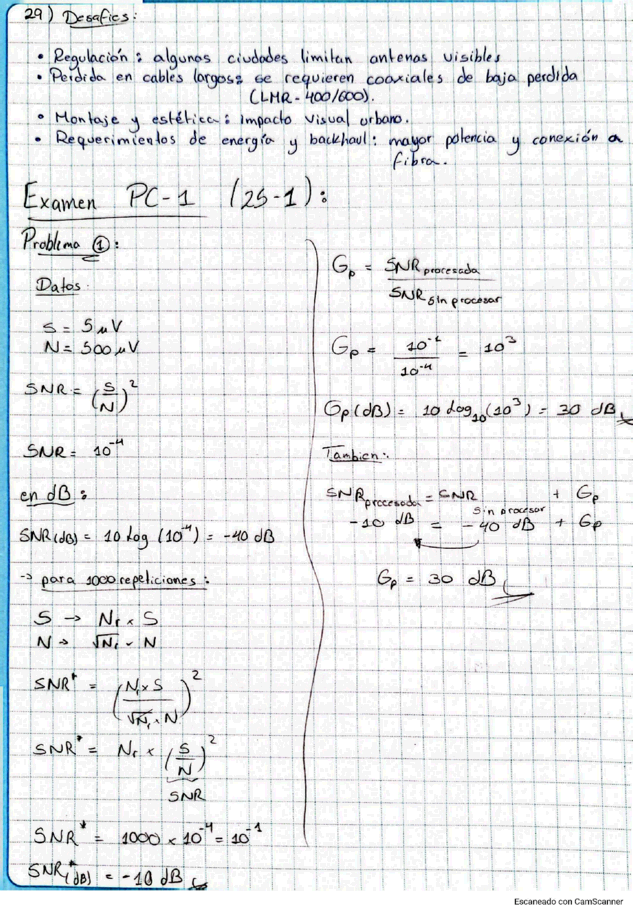 29) Desafíos:
• Regulación: algunas ciudades limitan antenas visibles
• Perdida en cables largos: se requieren coaxiales de baja perdida
(LMR-400/600).
• Montaje y estética: Impacto visual urbano.
• Requerimientos de energía y backhaul: mayor potencia y conexión a
fibra.
Examen PC-1 (25-1):
Problema ①:
Datos:
S = 5 μV
N = 500 μV
SNR = (S/N)²
SNR = 10⁻⁴
en dB:
SNR(dB) = 10 Log (10⁻⁴) = -40 dB
-> para 1000 repeticiones:
S → Nr × S
N → √Nr × N
SNR* = (Nr × S / √Nr × N)²
SNR* = Nr × (S/N)²
SNR
SNR* = 1000 × 10⁻⁴ = 10⁻¹
SNR*(dB) = -10 dB
Gp = SNR procesada / SNR sin procesar
Gp = 10⁻¹ / 10⁻⁴ = 10³
Gp(dB) = 10 Log₁₀(10³) = 30 dB
Tambien:
SNR procesada = SNR sin procesar + Gp
-10 dB = -40 dB + Gp
Gp = 30 dB
Escaneado con CamScanner